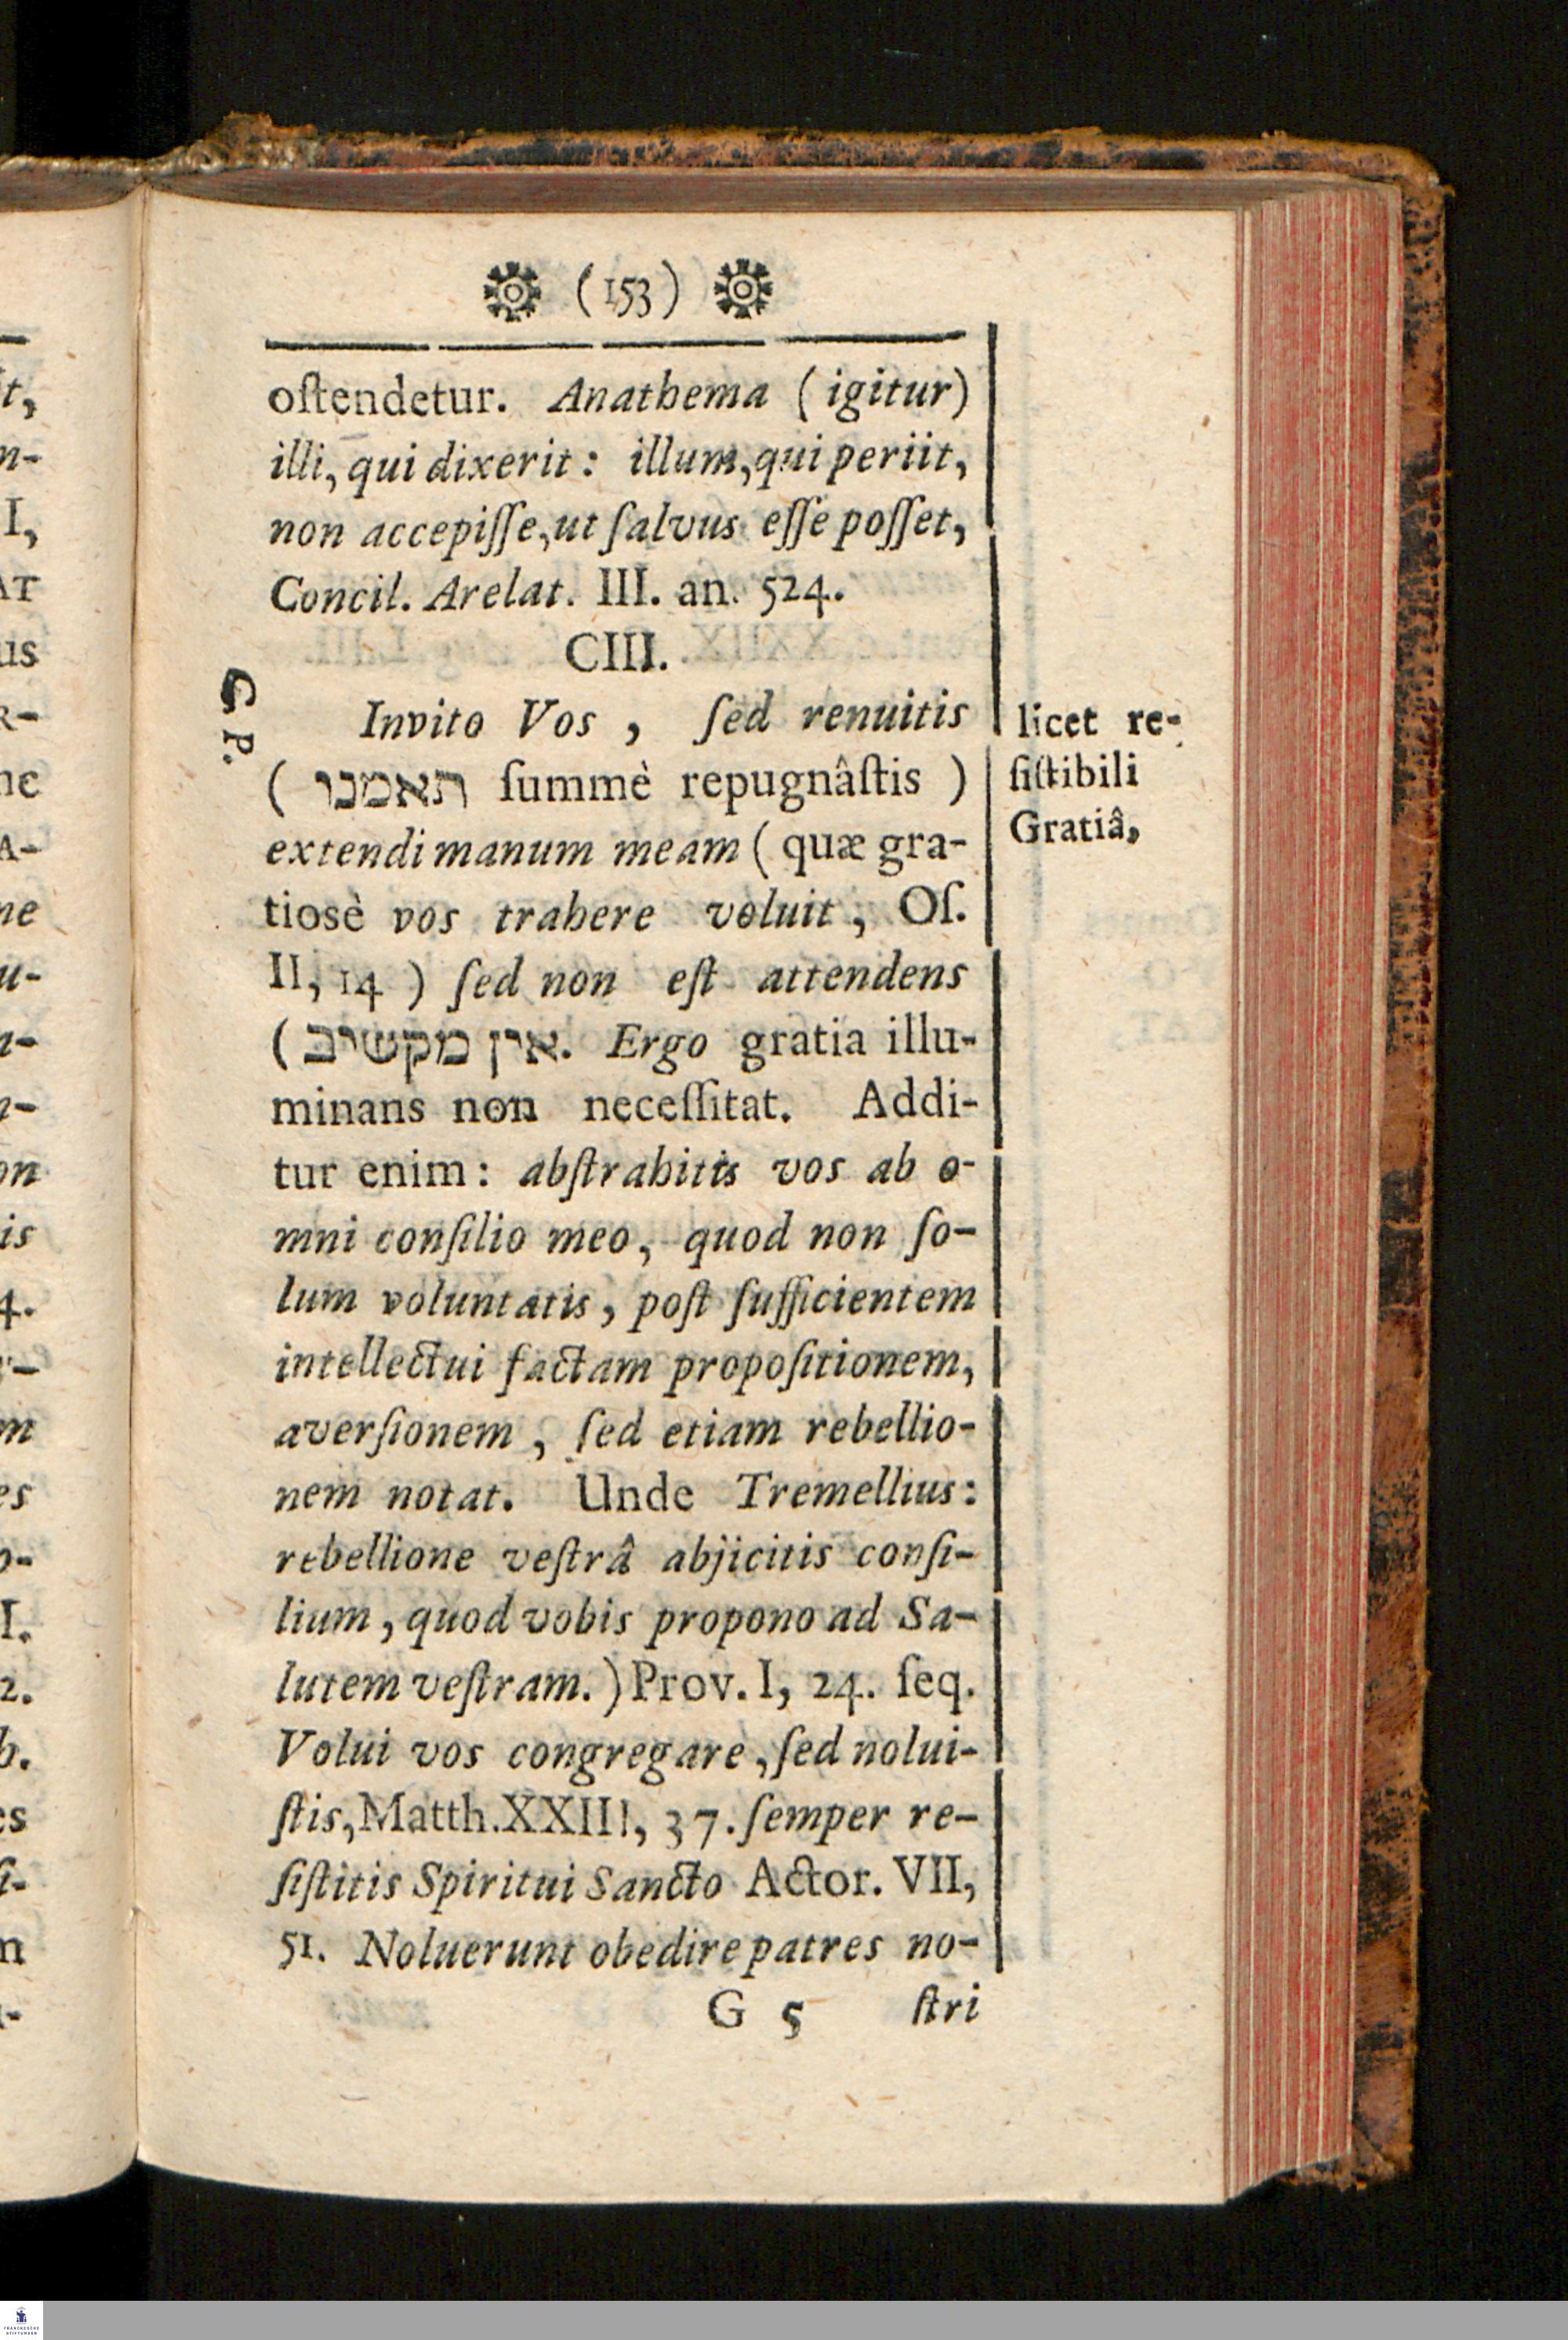 (153)
oſtendetur. Anathema (igitur)
illi, qui dixerit: illum, qui periit,
non accepiſſe, ut ſalvus eſſe poſſet,
Concil. Arelat. III. an. 524.
CIII.
G. P.
Invito Vos, ſed renuitis
(תאמנו ſummè repugnâſtis)
extendi manum meam (quæ gra-
tiosè vos trahere voluit, Oſ.
II, 14) ſed non eſt attendens
(אין מקשיב. Ergo gratia illu-
minans non neceſſitat. Addi-
tur enim: abſtrahitis vos ab o-
mni conſilio meo, quod non ſo-
lum voluntatis, poſt ſufficientem
intellectui factam propoſitionem,
averſionem, ſed etiam rebellio-
nem notat. Unde Tremellius:
rebellione veſtrâ abjicitis conſi-
lium, quod vobis propono ad Sa-
lutem veſtram.) Prov. I, 24. ſeq.
Volui vos congregare, ſed nolui-
ſtis, Matth. XXIII, 37. ſemper re-
ſiſtitis Spiritui Sancto Actor. VII,
51. Noluerunt obedire patres no-
G 5 ſtri
licet re-
ſiſtibili
Gratiâ,
FRANCKESCHE
STIFTUNGEN